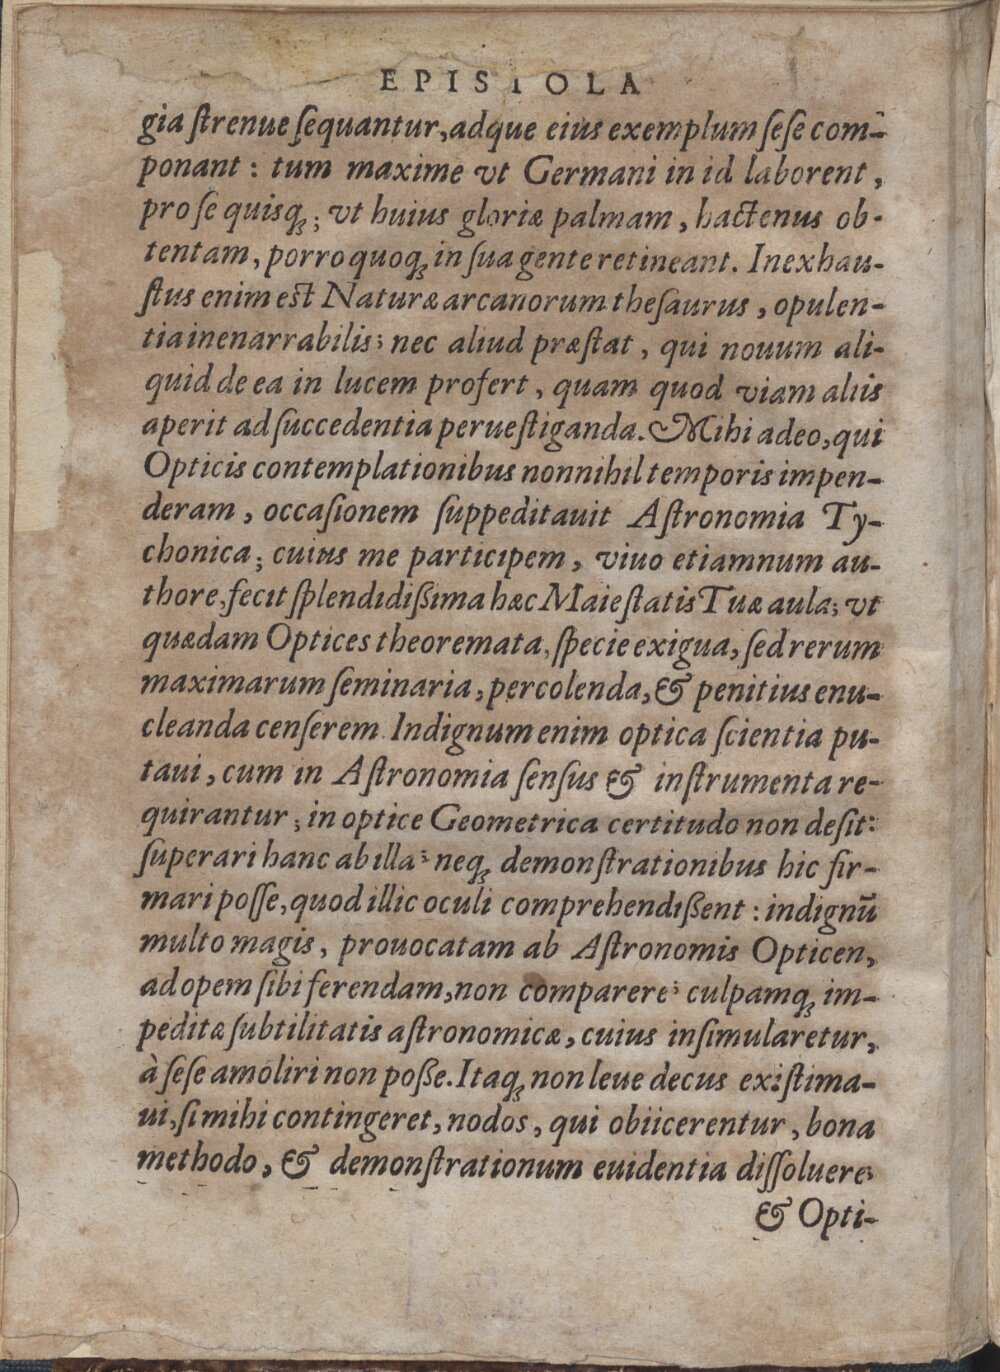 EPISTOLA
gia ſtrenue ſequantur, adque eius exemplum ſeſe com-
ponant : tum maxime vt Germani in id laborent,
pro ſe quisq́; vt huius gloriæ palmam, hactenus ob-
tentam, porro quoq́ in ſua gente retineant. Inexhau-
ſtus enim est Naturæ arcanorum theſaurus, opulen-
tia inenarrabilis; nec aliud præſtat, qui nouum ali-
quid de ea in lucem profert, quam quod viam aliis
aperit ad ſuccedentia perueſtiganda. Mihi adeo, qui
Opticis contemplationibus nonnihil temporis impen-
deram, occaſionem ſuppeditauit Aſtronomia Ty-
chonica; cuius me participem, viuo etiamnum au-
thore, fecit ſplendidißima hæc Maieſtatis Tuæ aula; vt
quædam Optices theoremata, ſpecie exigua, ſed rerum
maximarum ſeminaria, percolenda, & penitius enu-
cleanda cenſerem. Indignum enim optica ſcientia pu-
taui, cum in Aſtronomia ſenſus & inſtrumenta re-
quirantur; in optice Geometrica certitudo non deſit:
ſuperari hanc ab illa: neq́ demonſtrationibus hic fir-
mari poſſe, quod illic oculi comprehendißent : indignū
multo magis, prouocatam ab Aſtronomis Opticen,
ad opem ſibi ferendam, non comparere: culpamq́ im-
peditæ ſubtilitatis aſtronomicæ, cuius inſimularetur,
à ſeſe amoliri non poße. Itaq́ non leue decus exiſtima-
ui, ſi mihi contingeret, nodos, qui obiicerentur, bona
methodo, & demonſtrationum euidentia diſſoluere;
& Opti-